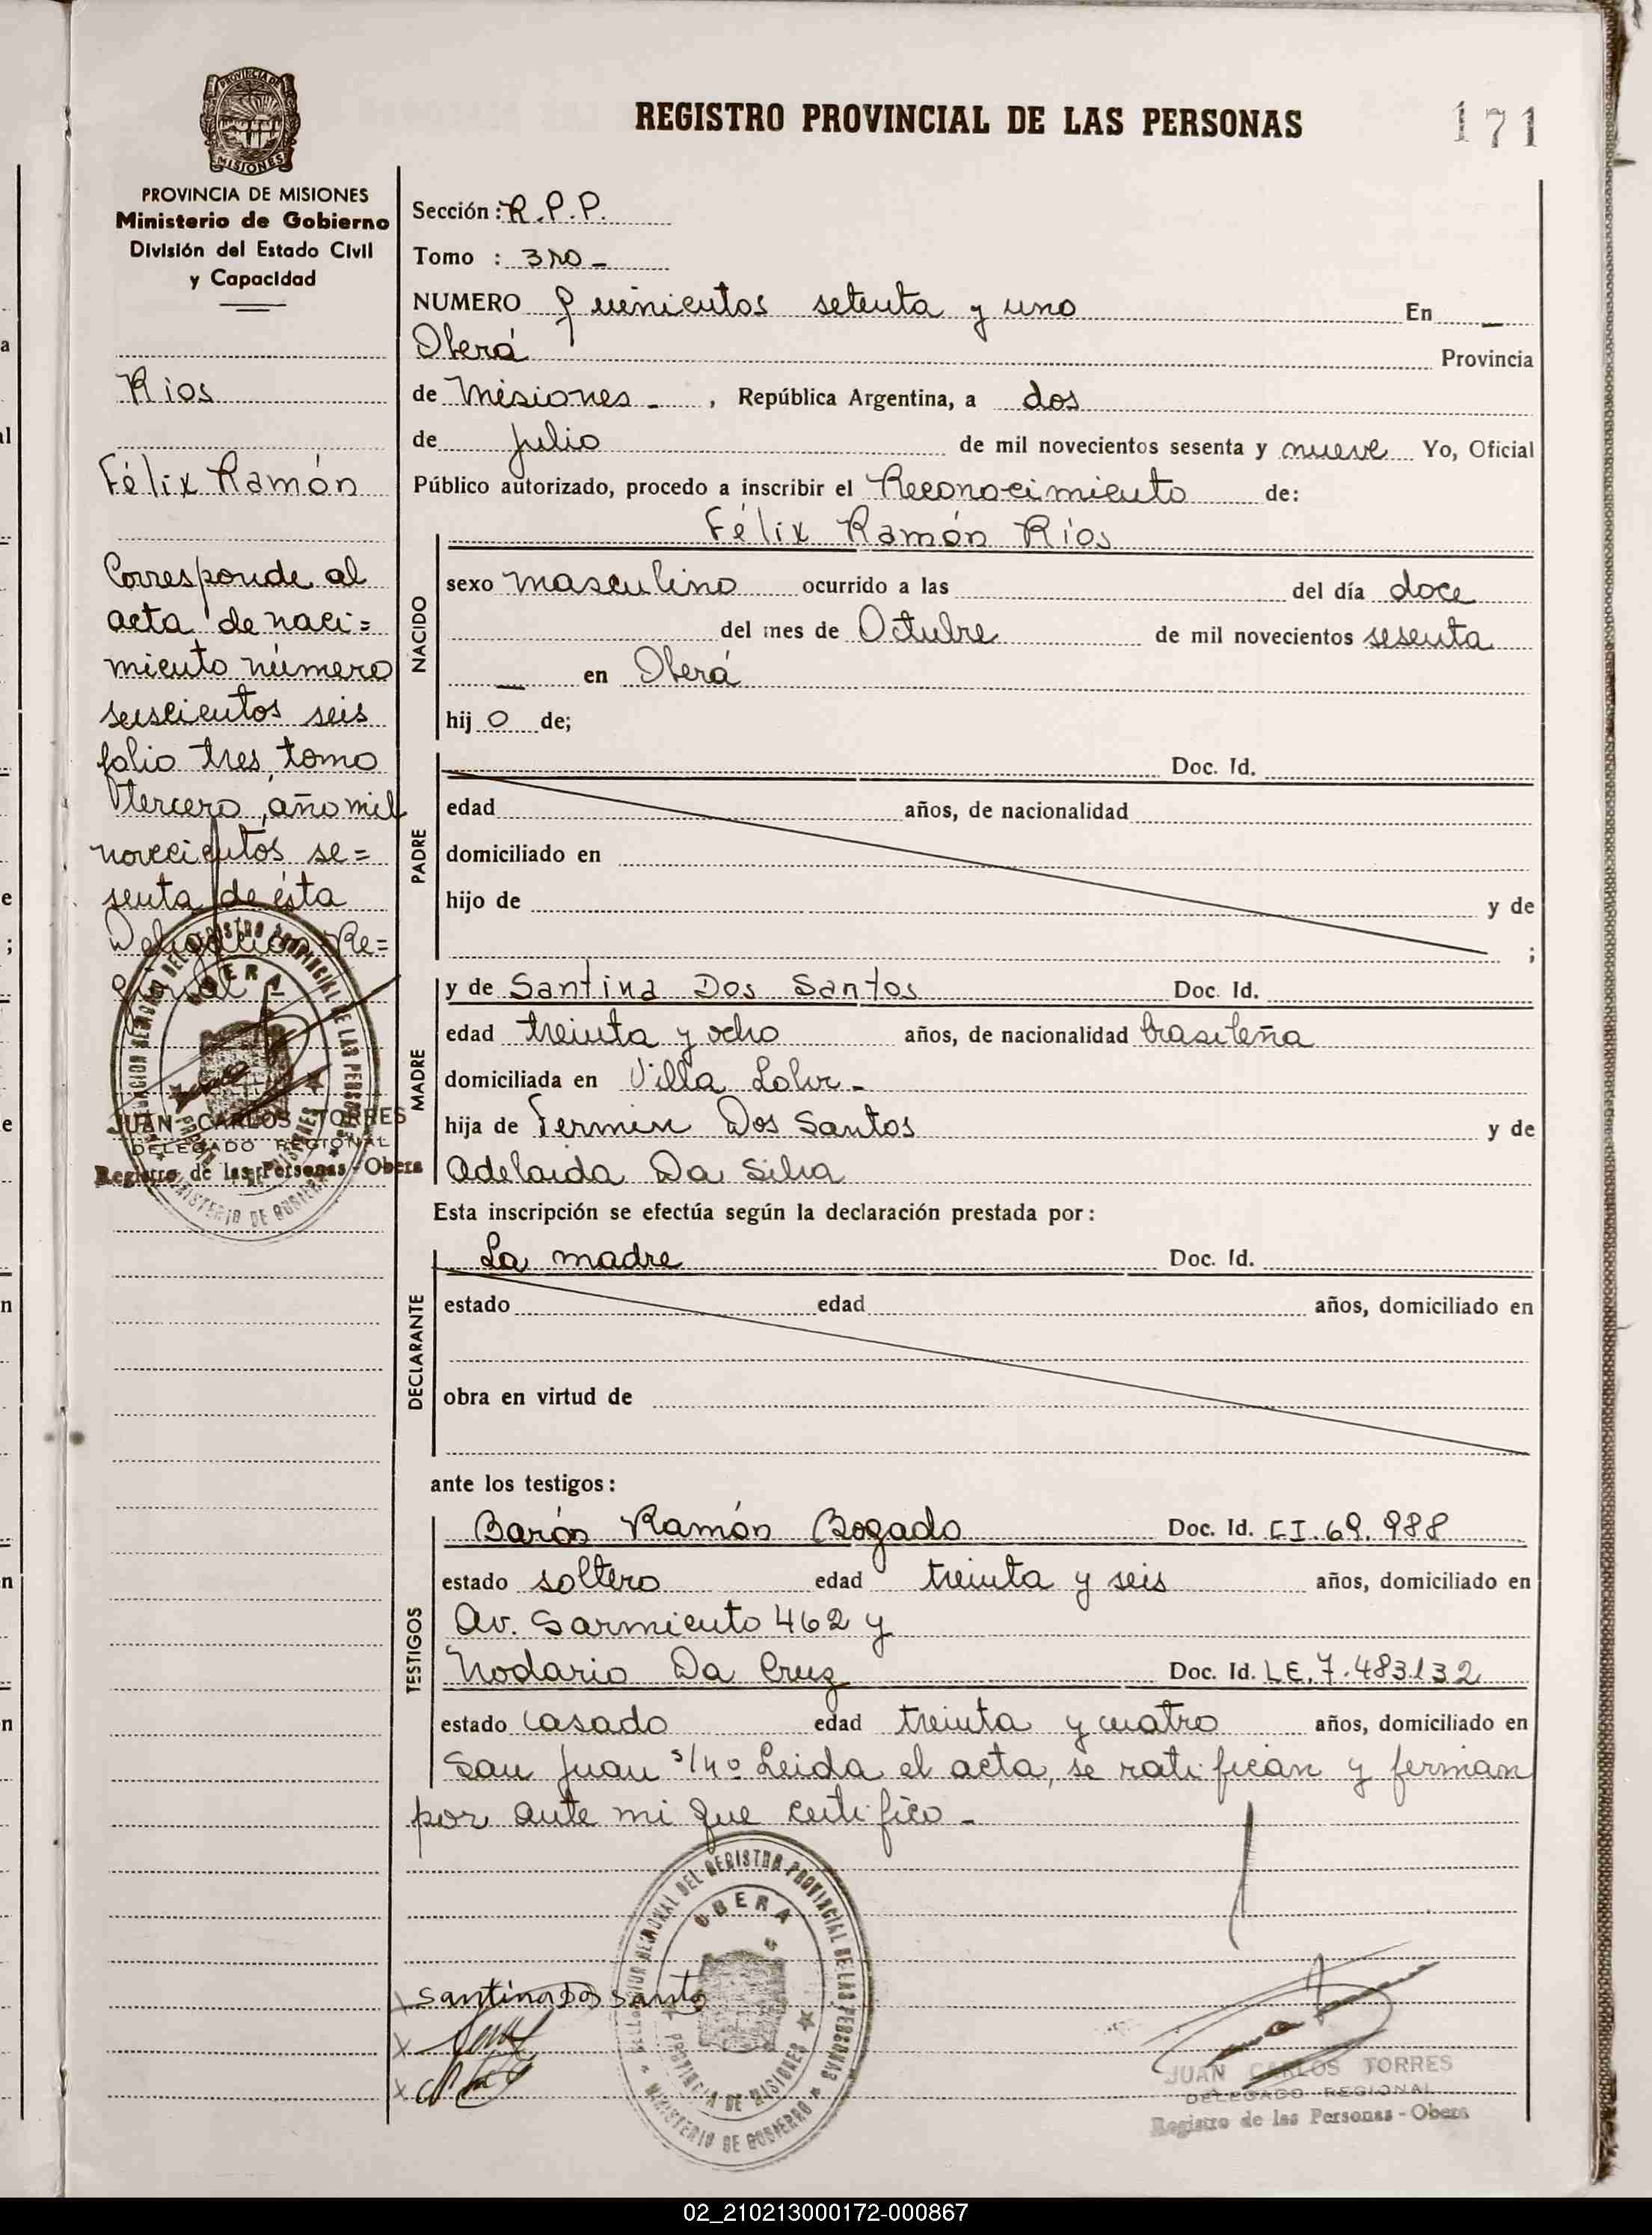 REGISTRO PROVINCIAL DE LAS PERSONAS
171
PROVINCIA DE MISIONES
PROVINCIA DE MISIONES
Ministerio de Gobierno
División del Estado Civil
y Capacidad
Ríos
Félix Ramón
Corresponde al
acta de naci=
miento número
seiscientos seis
folio tres, tomo
tercero, año mil
novecientos se=
senta de ésta
Delegación Re=
gional
OBERA
JUAN CARLOS TORRES
DELEGADO REGIONAL
Registro de las Personas - Obera
Sección : R.P.P.
Tomo : 3ro -
NUMERO Quinientos setenta y uno En
Oberá Provincia
de Misiones - , República Argentina, a dos
de Julio de mil novecientos sesenta y nueve Yo, Oficial
Público autorizado, procedo a inscribir el Reconocimiento de:
NACIDO
Félix Ramón Ríos
sexo masculino ocurrido a las del día doce
del mes de Octubre de mil novecientos sesenta
— en Oberá
hij o de;
PADRE
Doc. Id.
edad años, de nacionalidad
domiciliado en
hijo de y de
;
MADRE
y de Santina Dos Santos Doc. Id.
edad treinta y ocho años, de nacionalidad brasileña
domiciliada en Villa
hija de Fermin Dos Santos y de
Adelaida Da Silva
Esta inscripción se efectúa según la declaración prestada por :
DECLARANTE
La madre Doc. Id.
estado edad años, domiciliado en
obra en virtud de
ante los testigos :
TESTIGOS
Barón Ramón Bogado Doc. Id. CI.69.988
estado soltero edad treinta y seis años, domiciliado en
Av. Sarmiento 462 y
Nodario Da Cruz Doc. Id. LE.7.483.132
estado casado edad treinta y cuatro años, domiciliado en
San Juan s/nº Leida el acta, se ratifican y firman
por ante mi que certifico -
Santina Dos Santo
DELEGACION REGIONAL DEL REGISTRO PROVINCIAL DE LAS PERSONAS
OBERA
PROVINCIA DE MISIONES
MINISTERIO DE GOBIERNO
JUAN CARLOS TORRES
DELEGADO REGIONAL
Registro de las Personas - Obera
02_210213000172-000867